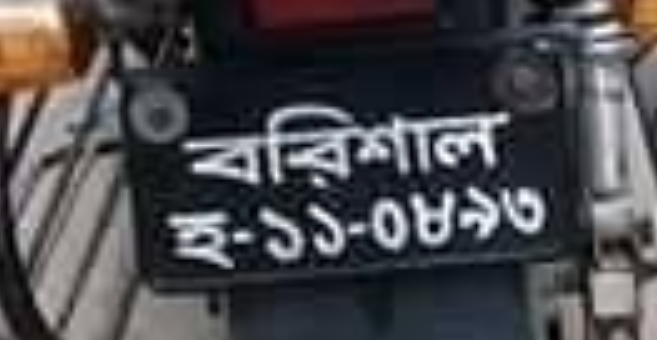 বরিশাল
হ-১১-০৪৯৩